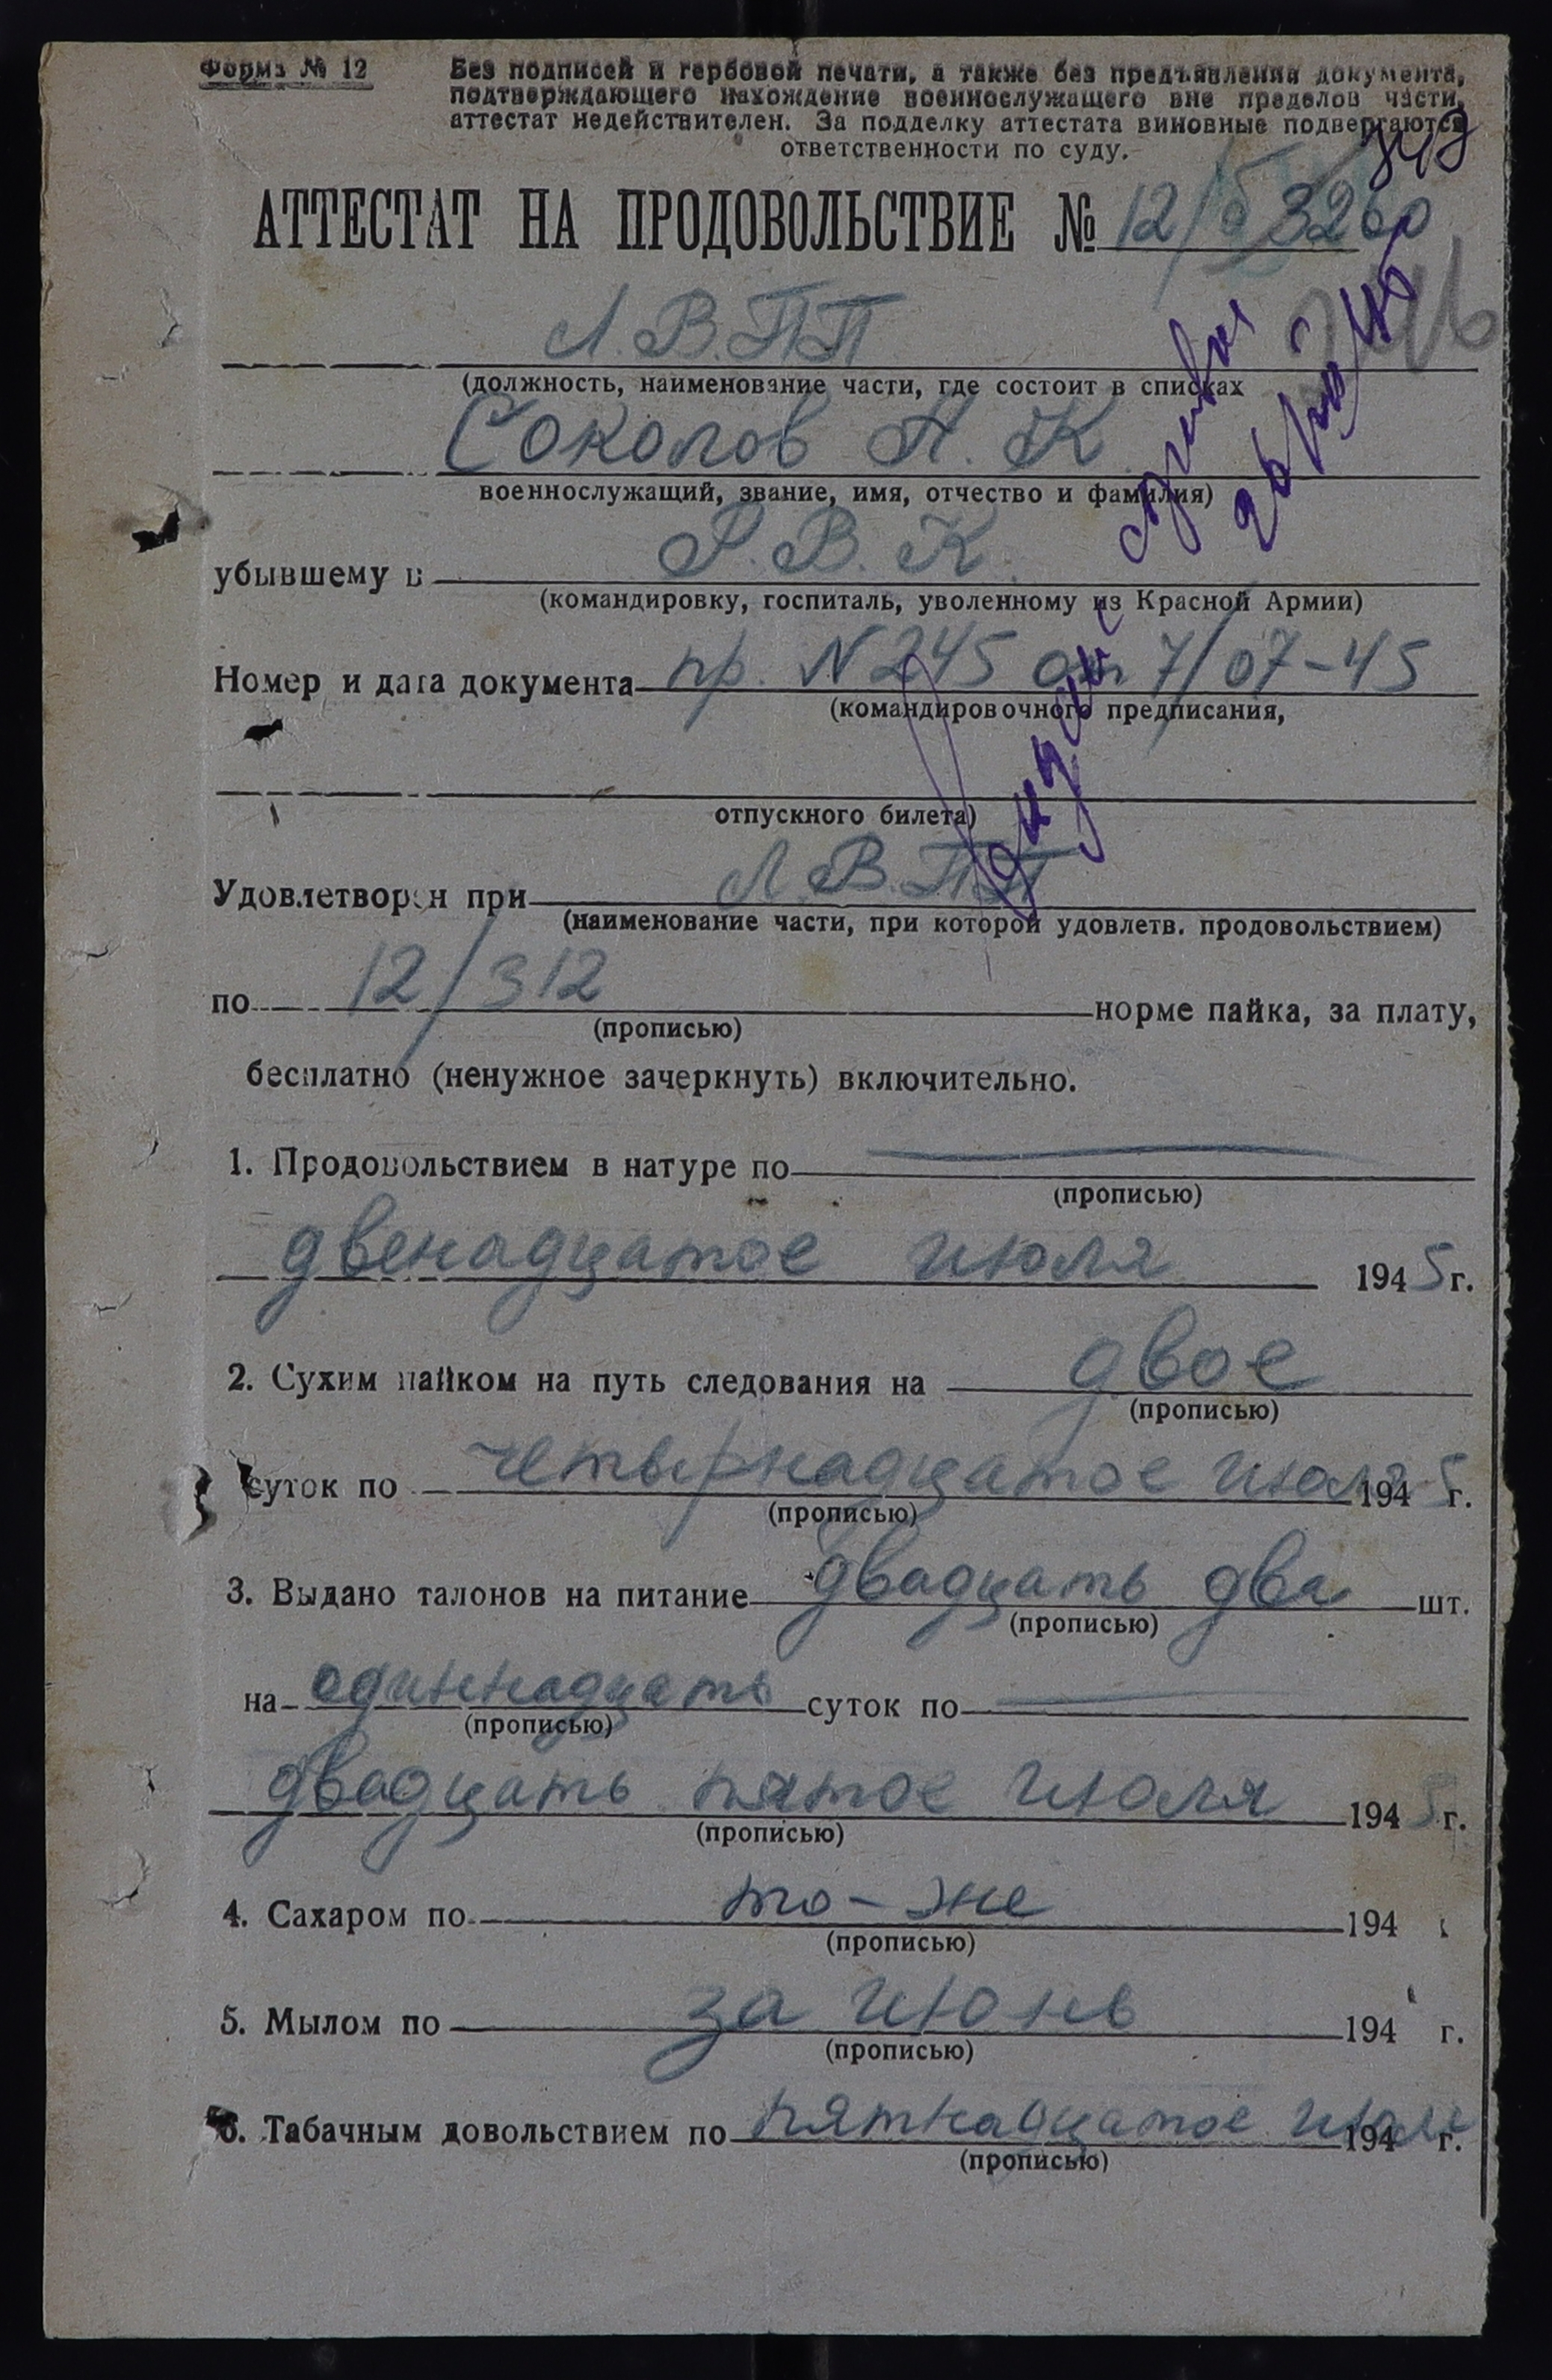 Форма № 12
Без подписей и гербовой печати, а также без предъявления документа,
подтверждающего нахождение военнослужащего вне пределов части,
аттестат недействителен. За подделку аттестата виновные подвергаются
ответственности по суду.
АТТЕСТАТ НА ПРОДОВОЛЬСТВИЕ №
Л.В.ПП
(должность, наименование части, где состоит в списках
Соколов А. К.
военнослужащий, звание, имя, отчество и фамилия)
убывшему в Р. В. К.
(командировку, госпиталь, уволенному из Красной Армии)
Номер и дата документа пр. N 245 от 7/07-45
(командировочного предписания,
отпускного билета)
Удовлетворен при Л.В.ПП
(наименование части, при которой удовлетв. продовольствием)
по 12/312 норме пайка, за плату,
(прописью)
бесплатно (ненужное зачеркнуть) включительно.
1. Продовольствием в натуре по
(прописью)
двенадцатое июля 1945 г.
2. Сухим пайком на путь следования на двое
(прописью)
суток по четырнадцатое июля 1945 г.
(прописью)
3. Выдано талонов на питание двадцать два шт.
(прописью)
на одиннадцать суток по
(прописью)
двадцать пятое июля 1945 г.
(прописью)
4. Сахаром по то-же 194
(прописью)
5. Мылом по за июнь 194 г.
(прописью)
6. Табачным довольствием по пятнадцатое июля 194 г.
(прописью)